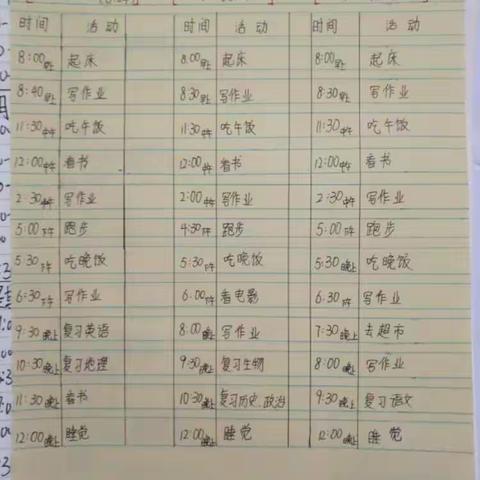 时间 活动 时间 活动 时间 活动
8:00早上 起床 8:00早上 起床 8:00早上 起床
8:40早上 写作业 8:30早上 写作业 8:30早上 写作业
11:30中午 吃午饭 11:30中午 吃午饭 11:30中午 吃午饭
12:00中午 看书 12:00中午 看书 12:00中午 看书
2:30中午 写作业 2:00中午 写作业 2:30中午 写作业
5:00下午 跑步 4:30下午 跑步 5:00下午 跑步
5:30下午 吃晚饭 5:30下午 吃晚饭 5:30晚上 吃晚饭
6:30下午 写作业 6:00下午 看电影 6:30下午 写作业
9:30晚上 复习英语 8:00晚上 写作业 7:30晚上 去超市
10:30晚上 复习地理 9:30晚上 复习生物 8:00晚上 写作业
11:30晚上 看书 10:30晚上 复习历史.政治 9:30晚上 复习语文
12:00晚上 睡觉 12:00晚上 睡觉 12:00晚上 睡觉